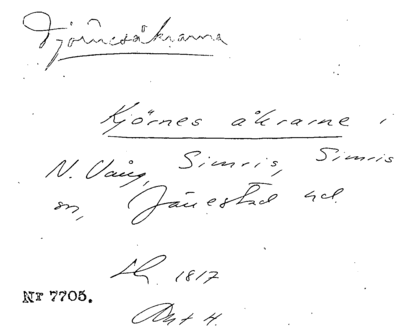 Tjörnesåkrarna
Kjörnes åkrarne i
N. Vång, Simris, Simris
sn, Järrestad hd.
Lh. 1817
Akt 4.
Nr 7705.